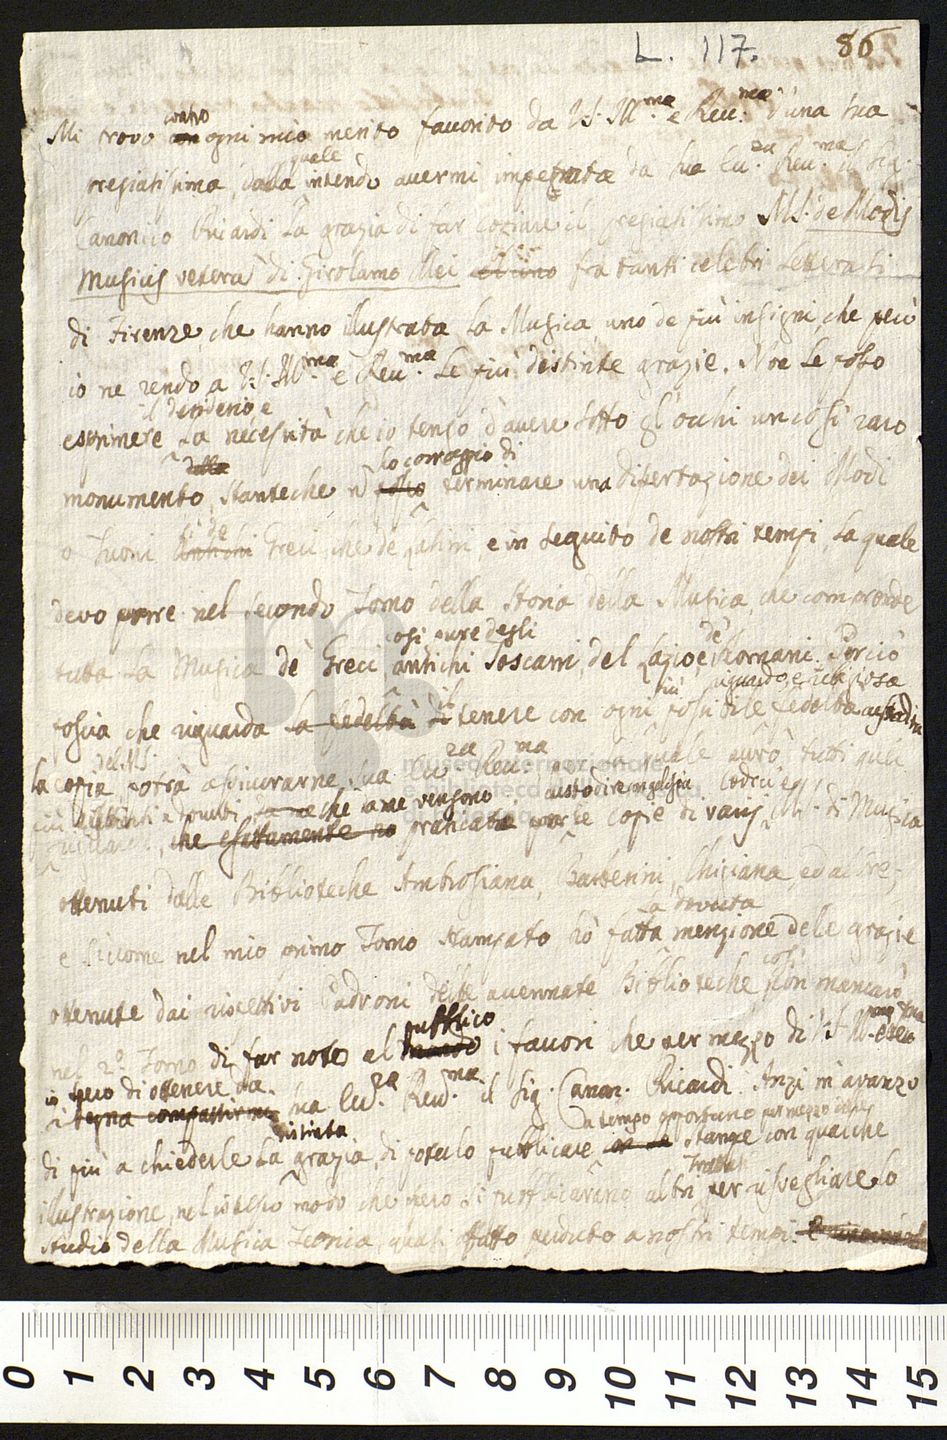 L. 117. 86
contro
Mi trovo ogni mio merito favorito da V. S. M.ma e Rev.ma d'una sua
quale
pregiatissima, dalla intendo avermi impetrata da Sua Ecc.za Rev.ma il Sig.
Canonico Ricardi la grazia di far copiare il pregiatissimo MS. de Modis
Musicis veterũ di Girolamo Mei fra tanti celebri Letterati
di Firenze, che hanno illustrata la Musica uno de più insigni, che però
io ne rendo a V. S. M.ma e Rev.ma le più distinte grazie. Non le posso
il desiderio e
esprimere la necessità che io tengo d'avere sotto gl'occhi un così raro
lo corraggio di
monumento, stanteche terminare una disertazione dei Modi
o Tuoni Greci, che de Latini e in seguito de nostri tempi, la quale
devo porre nel secondo Tomo della Storia della Musica, che comprende
così pure degli de
tutta la Musica de Greci antichi Toscani, del Lazio e Romani. Perciò
più riguardo, e religiosa
tosia che riguarda la fedeltà il tenere con ogni possibile custodia
del MS.
la copia potrà assicurarne Sua Ecc.za Rev.ma per il quale avrò tutti quei
che a me vengono custodire Codici
che esattamente praticati per le copie di varij di Musica
ottenuti dalle Biblioteche Ambrosiana, Barberini, Chigiana, ed altre;
la dovuta
e siccome nel mio primo Tomo stampato hò fatta menzione dele grazie
così
ottenute dai rispettivi Padroni delle accennate Biblioteche non mancarò
pubblico
nel 2.o Tomo di far noto al mondo i favori che per mezzo di V. S. M.ma e Rev.ma
io spero di ottenere da
si degna compartirmi Sua Ecc.za Rev.ma il Sig. Canon. Ricardi. Anzi m'avanzo
distinta a tempo opportuno per mezzo delle
di più a chiederle la grazia, di poterlo pubblicare stampe con qualche
Trattati
illustrazione, nel istesso modo che spero si pubblicarano altri per risvegliare lo
studio della Musica Teorica, quasi affatto perduto a nostri tempi.
0 1 2 3 4 5 6 7 8 9 10 11 12 13 14 15